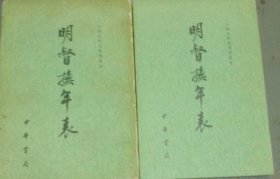 明督撫年表
中華書局
明督撫年表
中華書局